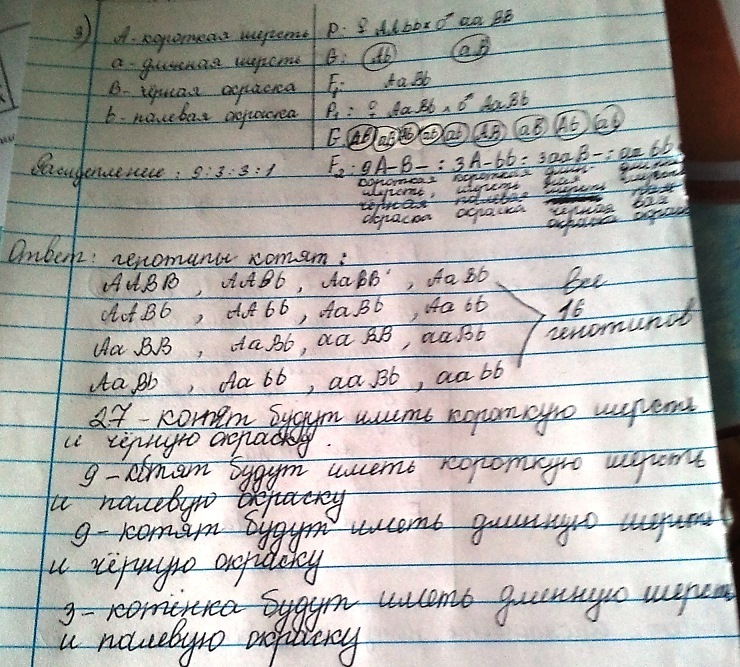 3) А - короткая шерсть
а - длинная шерсть
В - чёрная окраска
b - палевая окраска
Расщепление: 9:3:3:1
P: ♀ AAbb x ♂ aaBB
G: Ab aB
F₁: AaBb
P₁: ♀ AaBb x ♂ AaBb
G: AB aB Ab ab AB aB Ab ab
F₂: 9A-B- : 3A-bb : 3aaB- : aabb
короткая короткая длин- длинная
шерсть, шерсть ная шерсть
чёрная палевая шерсть пале-
окраска окраска чёрная вая
окраска окраска
Ответ: генотипы котят:
AABB, AABb, AaBB, AaBb
AABb, AAbb, AaBb, Aabb
AaBB, AaBb, aaBB, aaBb
AaBb, Aabb, aaBb, aabb
Все
16
генотипов
27 - котят будут иметь короткую шерсть
и чёрную окраску.
9 - котят будут иметь короткую шерсть
и палевую окраску
9 - котят будут иметь длинную шерсть
и чёрную окраску
3 - котёнка будут иметь длинную шерсть
и палевую окраску